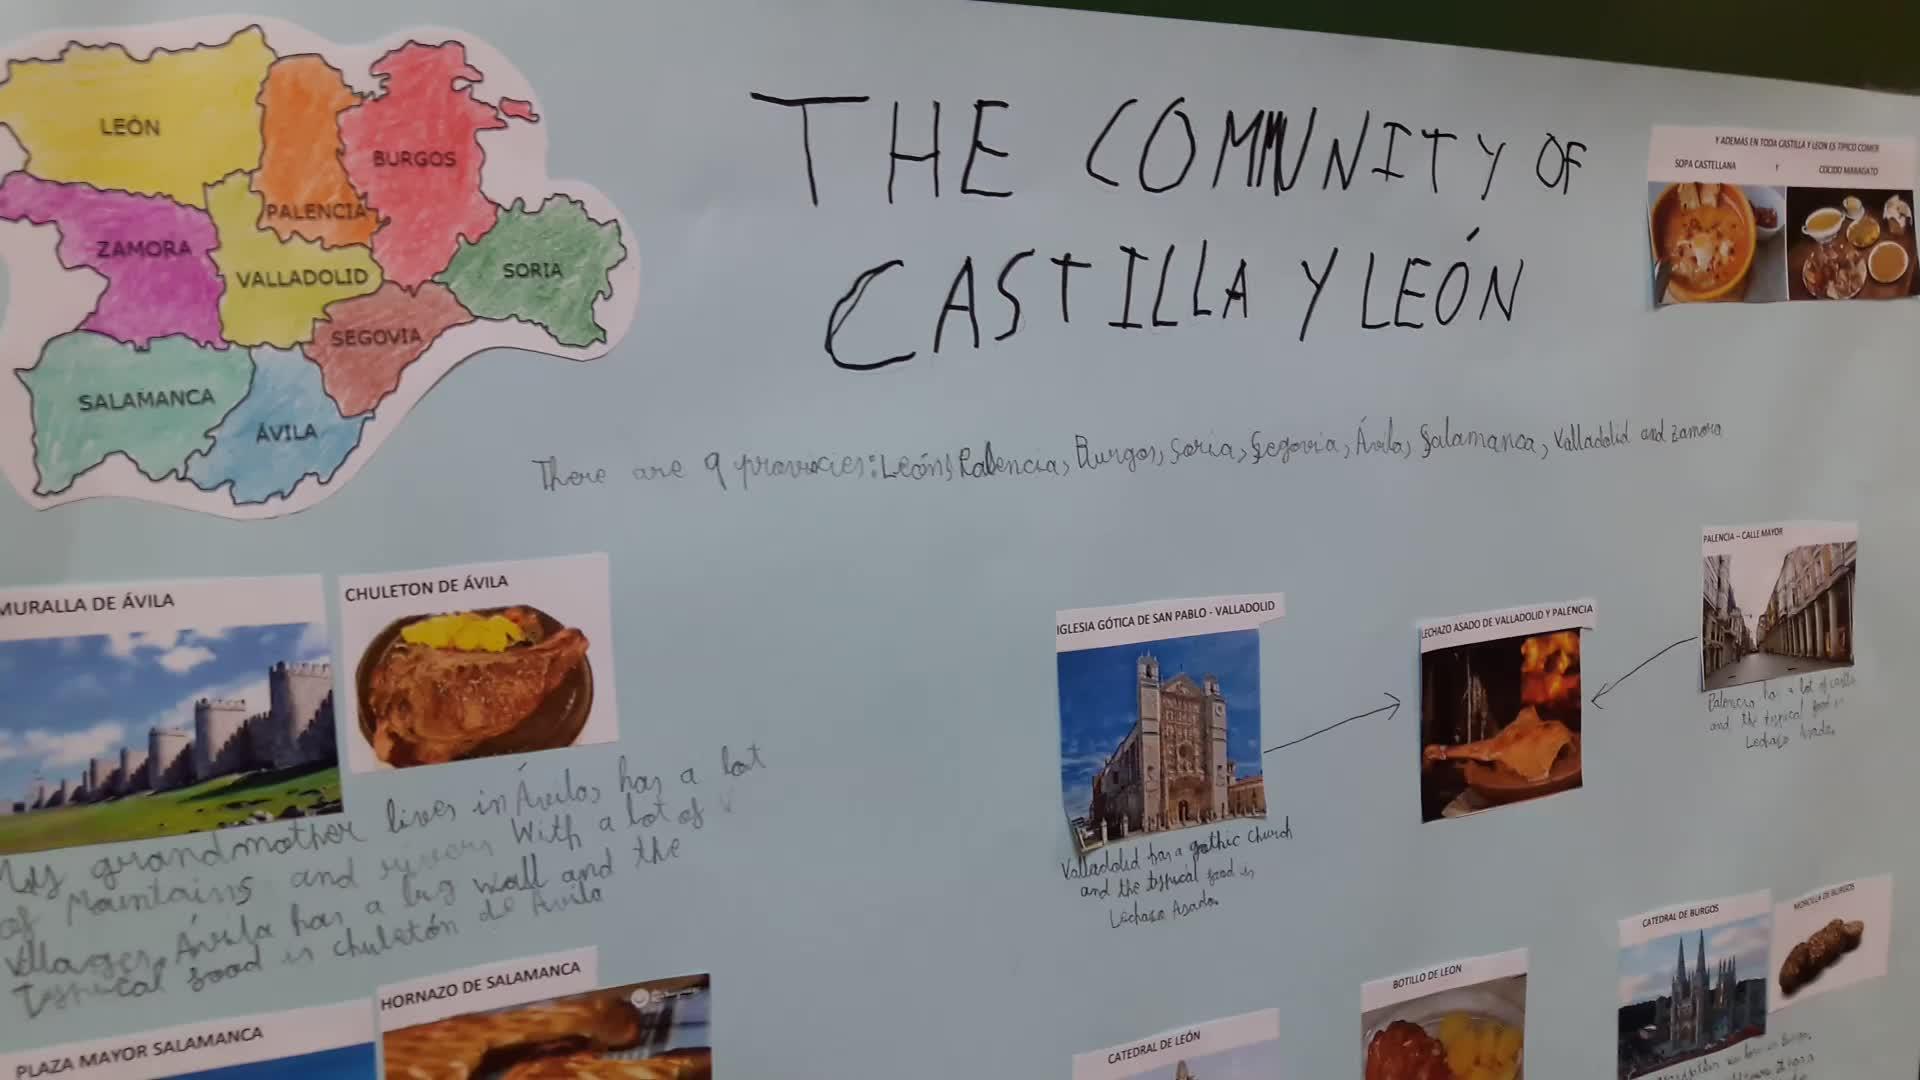 LEÓN
PALENCIA
BURGOS
ZAMORA
VALLADOLID
SORIA
SEGOVIA
SALAMANCA
ÁVILA
THE COMMUNITY OF
CASTILLA Y LEÓN
Y ADEMÁS EN TODA CASTILLA Y LEON ES TIPICO COMER
SOPA CASTELLANA Y COCIDO MARAGATO
There are 9 provincies: León, Palencia, Burgos, Soria, Segovia, Ávila, Salamanca, Valladolid and Zamora
MURALLA DE ÁVILA
CHULETON DE ÁVILA
My grandmother lives in Ávila, has a lot
of Mountains and rivers With a lot of
villages. Ávila has a big wall and the
typical food is chuletón de Ávila
IGLESIA GÓTICA DE SAN PABLO - VALLADOLID
Valladolid has a gothic Church
and the typical food is
Lechazo Asado.
LECHAZO ASADO DE VALLADOLID Y PALENCIA
PALENCIA – CALLE MAYOR
Palencia has a lot of
and the typical food is
Lechazo Asado.
HORNAZO DE SALAMANCA
PLAZA MAYOR SALAMANCA
CATEDRAL DE LEÓN
BOTILLO DE LEON
CATEDRAL DE BURGOS
MORCILLA DE BURGOS